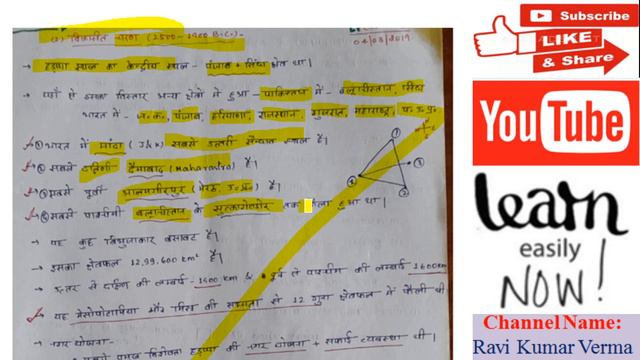 (2) विकसित चरण (2500-1900 B.C.)-
04/03/2019
→ हड़प्पा सभ्यता का केन्द्रीय स्थल - पंजाब + सिंध क्षेत्र था।
→ यहीं से इसका विस्तार अन्य क्षेत्रों में हुआ - पाकिस्तान में - बलूचिस्तान, सिंध
भारत में - J.K., पंजाब, हरियाणा, राजस्थान, गुजरात, महाराष्ट्र, प० उ०प्र०
① भारत में मांडा (J/K) सबसे उत्तरी सैन्धव स्थल है।
② सबसे दक्षिणी दैमाबाद (Maharastra) है।
③ सबसे पूर्वी आलमगीरपुर (मेरठ, उ०प्र०) है।
④ सबसे पश्चिमी बलूचिस्तान के सुत्कागेंडोर तक फैला हुआ था।
→ यह कुछ त्रिभुजाकार बसावट है।
→ इसका क्षेत्रफल 12,99,600 km² है।
→ उत्तर से दक्षिण की लम्बाई - 1400 km & पूर्व से पश्चिम की लम्बाई 1600km
→ यह मेसोपोटामिया और मिस्र की सभ्यता से 12 गुना क्षेत्रफल में फैली थी
→ नगर योजना -
हड़प्पा की नगर योजना + सफाई व्यवस्था थी।
1
3
4
2
Subscribe
LIKE
& Share
YouTube
learn
easily
NOW!
Channel Name:
Ravi Kumar Verma